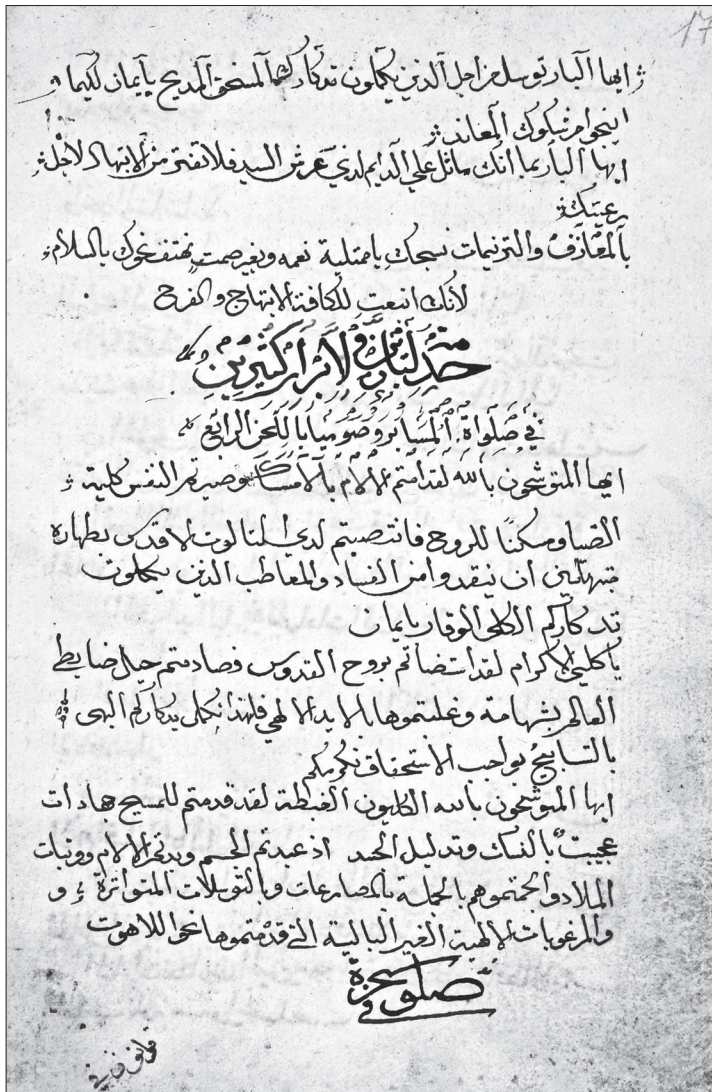 17
ايها البار توسل من اجل الذين يكملون تدكارك المستحق المديح بايمان لكيما
ينجوا من شكوك المعاند
ايها البار بما انك ماثل علي الدايم لدي عرش السيد فلا تفتر من الابتهال لاجل
رعيتك
بالمعازف والترنيمات نسبحك يا ممتلية نعمه وبغير صمت نهتف نحوك بالسلام
لانك انبعت للكافة الابتهاج والفرح
خدمة لابرار كثيرين
في صلواة المسا بروصوميا باللحن الرابع
ايها المتوشحون بالله لقد امتم الالام بالامساك وصيرتم النفس كلية
الضيا ومسكنًا للروح فانتصبتم لدي الثالوت الاقدس بطهارة
مبتهلين ان ينقدوا من الفساد والمعاطب الذين يكملون
تدكاركم الكلي الوقار بايمان
يا كليي الاكرام لقد استضاتم بروح القدوس فصادمتم حيل ضابط
العالم بشهامه وغلبتموها بالايد الالهي فلهذا نكمل تدكاركم الهي
بالتسابيح بواجب الاستحقاق نكرمكم
ايها المتوشحون بالله الكليون الغبطة لقد قدمتم للمسيح جهادات
عجيبة بالنسك وتدليل الجسد اد عبدتم الجسم وبدني الالام ووبات
الملاد والجمتموهم بالجملة بالمصارعات وبالتوسلات المتواترة و
والمرغوبات الالهية الغير البالية التي قدمتموها نحو اللاهوت
صلوة سحرية
في